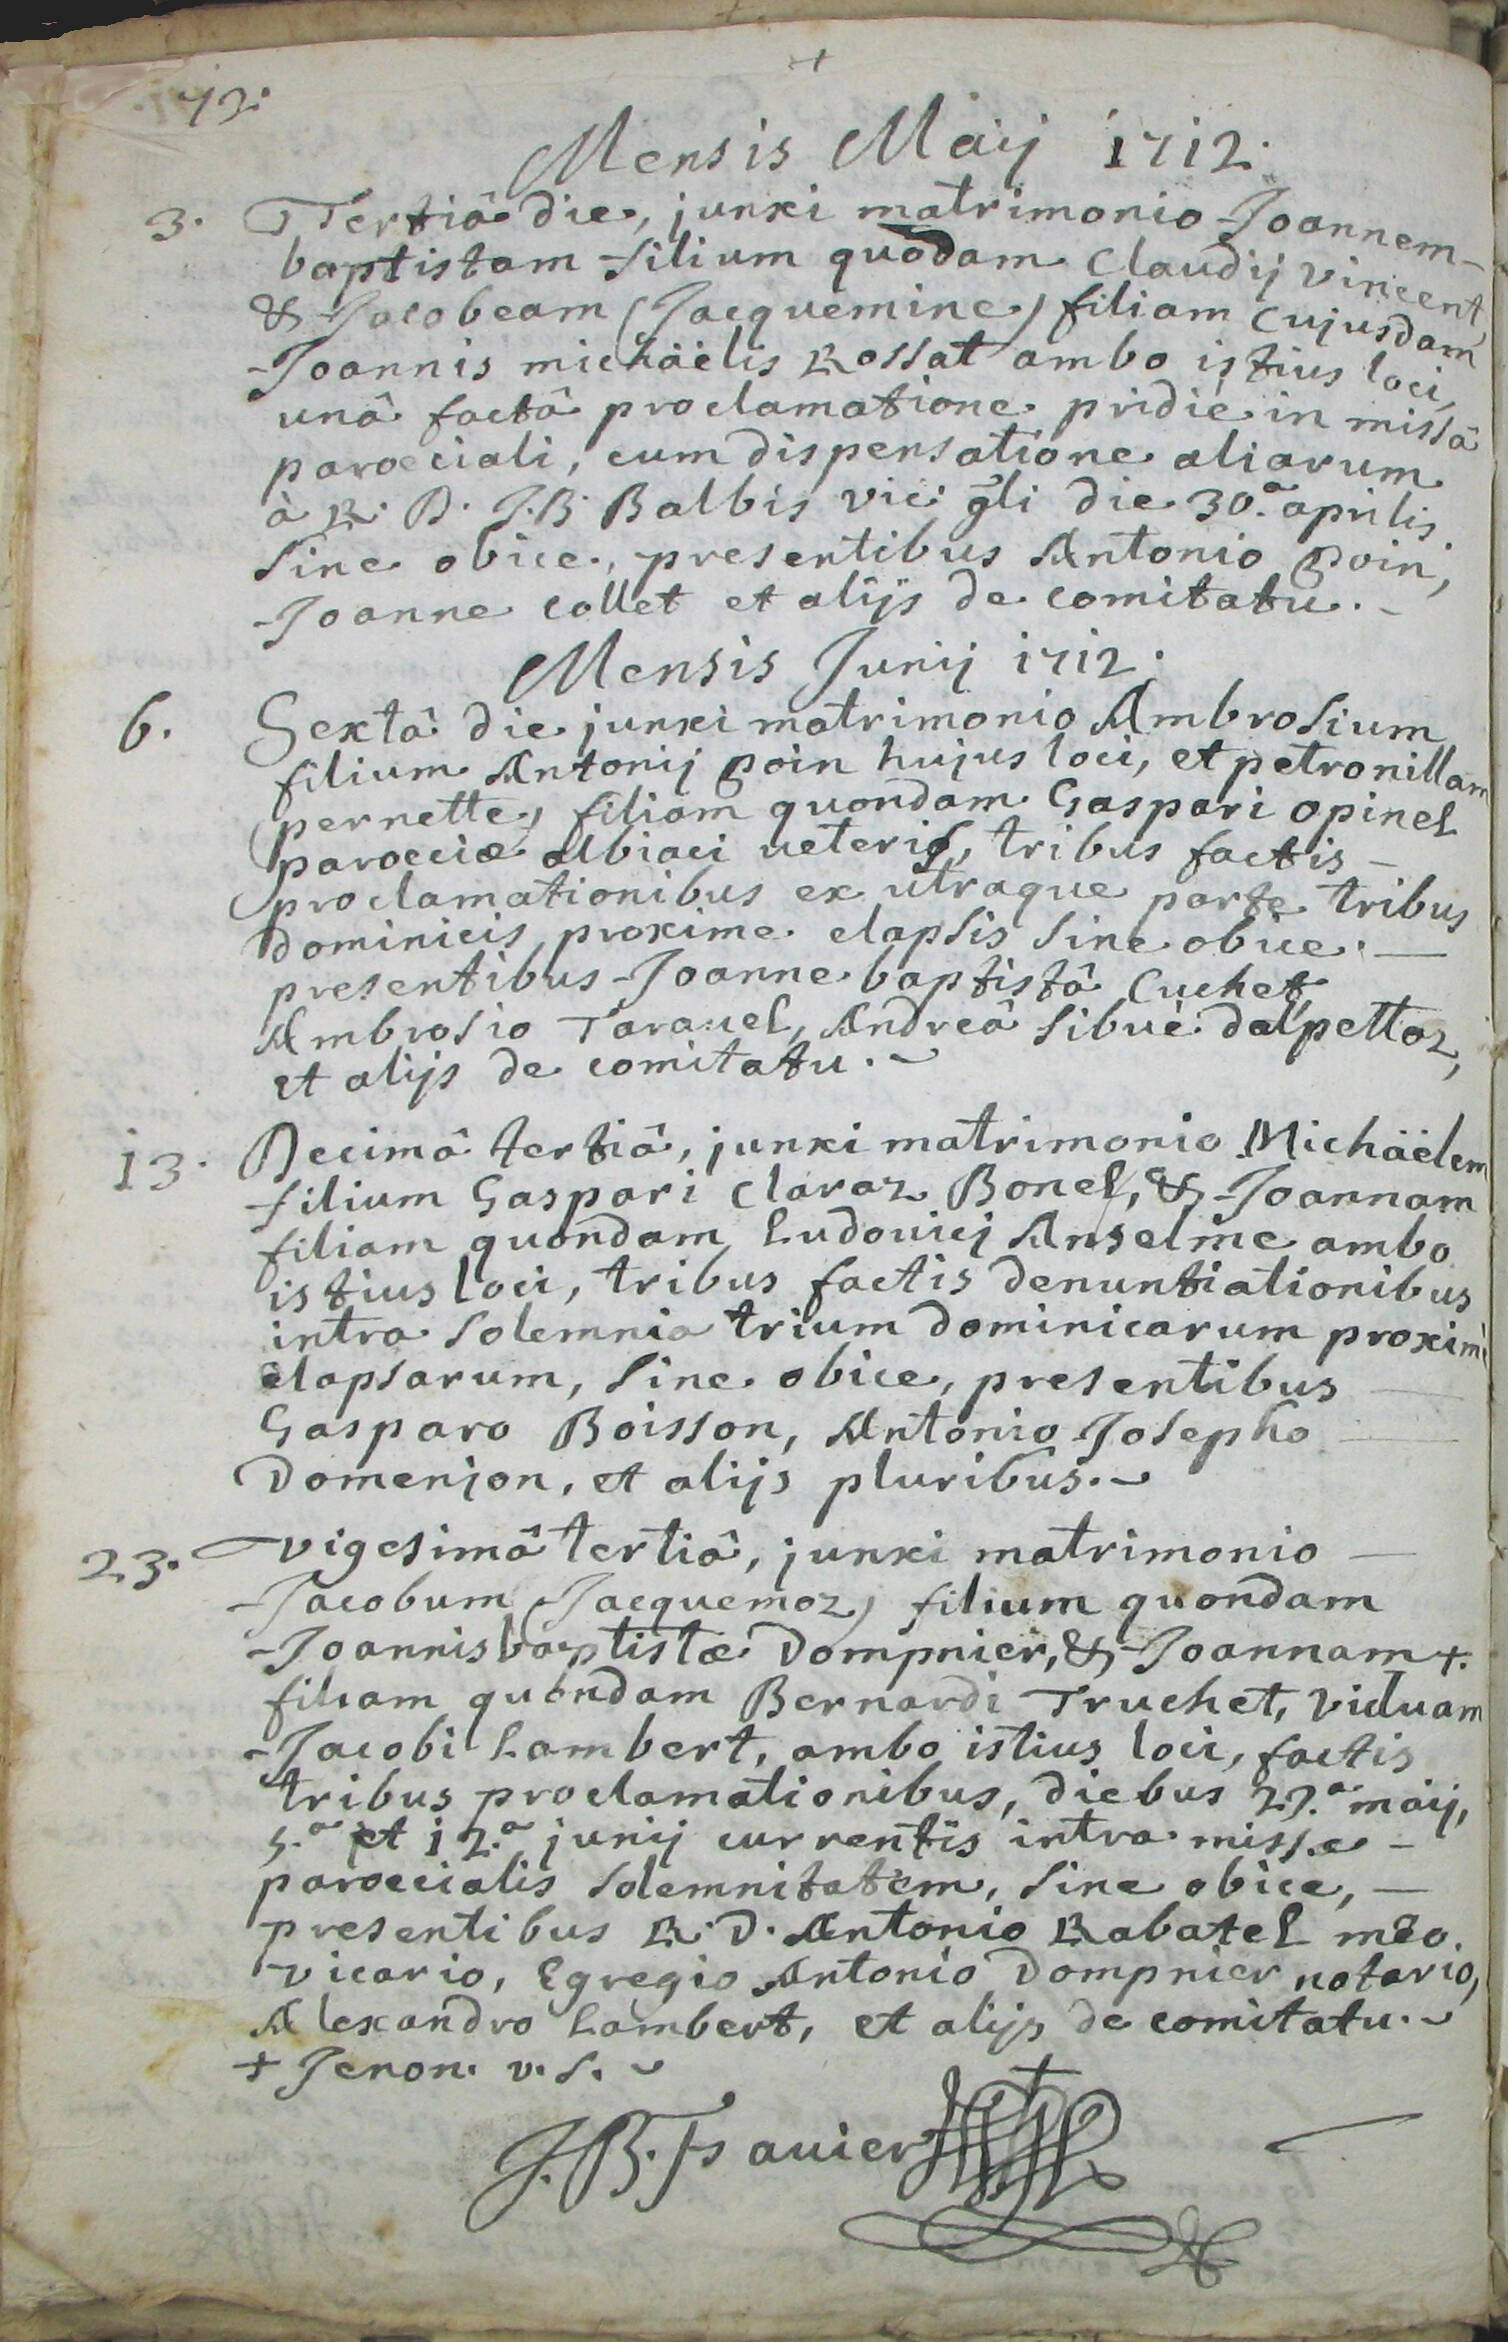 73.
Mensis Maij 1712.
3. Tertiâ die, junxi matrimonio Joannem-
baptistam filium quodam Claudij vincent,
& Jacobeam (Jacquemine) filiam cujusdam
Joannis michäelis Rossat ambo istius loci,
unâ factâ proclamatione pridie in missâ
paroeciali, cum dispensatione aliarum
à R. D. J.B. Balbis vic. gli die 30.a aprilis
sine obice, presentibus Antonio Poin,
Joanne collet et alijs de comitatu. -
Mensis Junij 1712.
6. Sextâ die junxi matrimonio Ambrosium
filium Antonij Poin hujus loci, et petronillam
(pernette) filiam quondam Gaspari opinel
paroeciæ albiaci veteris, tribus factis -
proclamationibus ex utraque parte tribus
dominicis proxime elapsis sine obice. -
presentibus Joanne baptistâ Cuchet,
Ambrosio Taravel, Andreâ sibué dalpettaz,
et alijs de comitatu. -
13. Decimâ tertiâ, junxi matrimonio Michäelem
filium Gaspari claraz Bonel, & Joannam
filiam quondam Ludovicj Anselme ambo
istius loci, tribus factis denuntiationibus
intra solemnia trium dominicarum proximè
elapsarum, sine obice, presentibus
Gasparo Boisson, Antonio Josepho
Domenjon, et alijs pluribus. -
23. vigesimâ tertiâ, junxi matrimonio -
Jacobum (Jacquemoz) filium quondam
Joannisbaptistæ Dompnier, & Joannam +.
filiam quondam Bernardi Truchet, viduam
Jacobi Lambert, ambo istius loci, factis
tribus proclamationibus, diebus 29.a maij,
5.a et 12.a junij currentis intra missæ -
paroecialis solemnitatem, sine obice, -
presentibus R. D. Antonio Rabatel meo
vicario, Egregio Antonio Dompnier notario,
Alexandro Lambert, et alijs de comitatu. -
+ Jenon. v. s. -
J. B. Favier